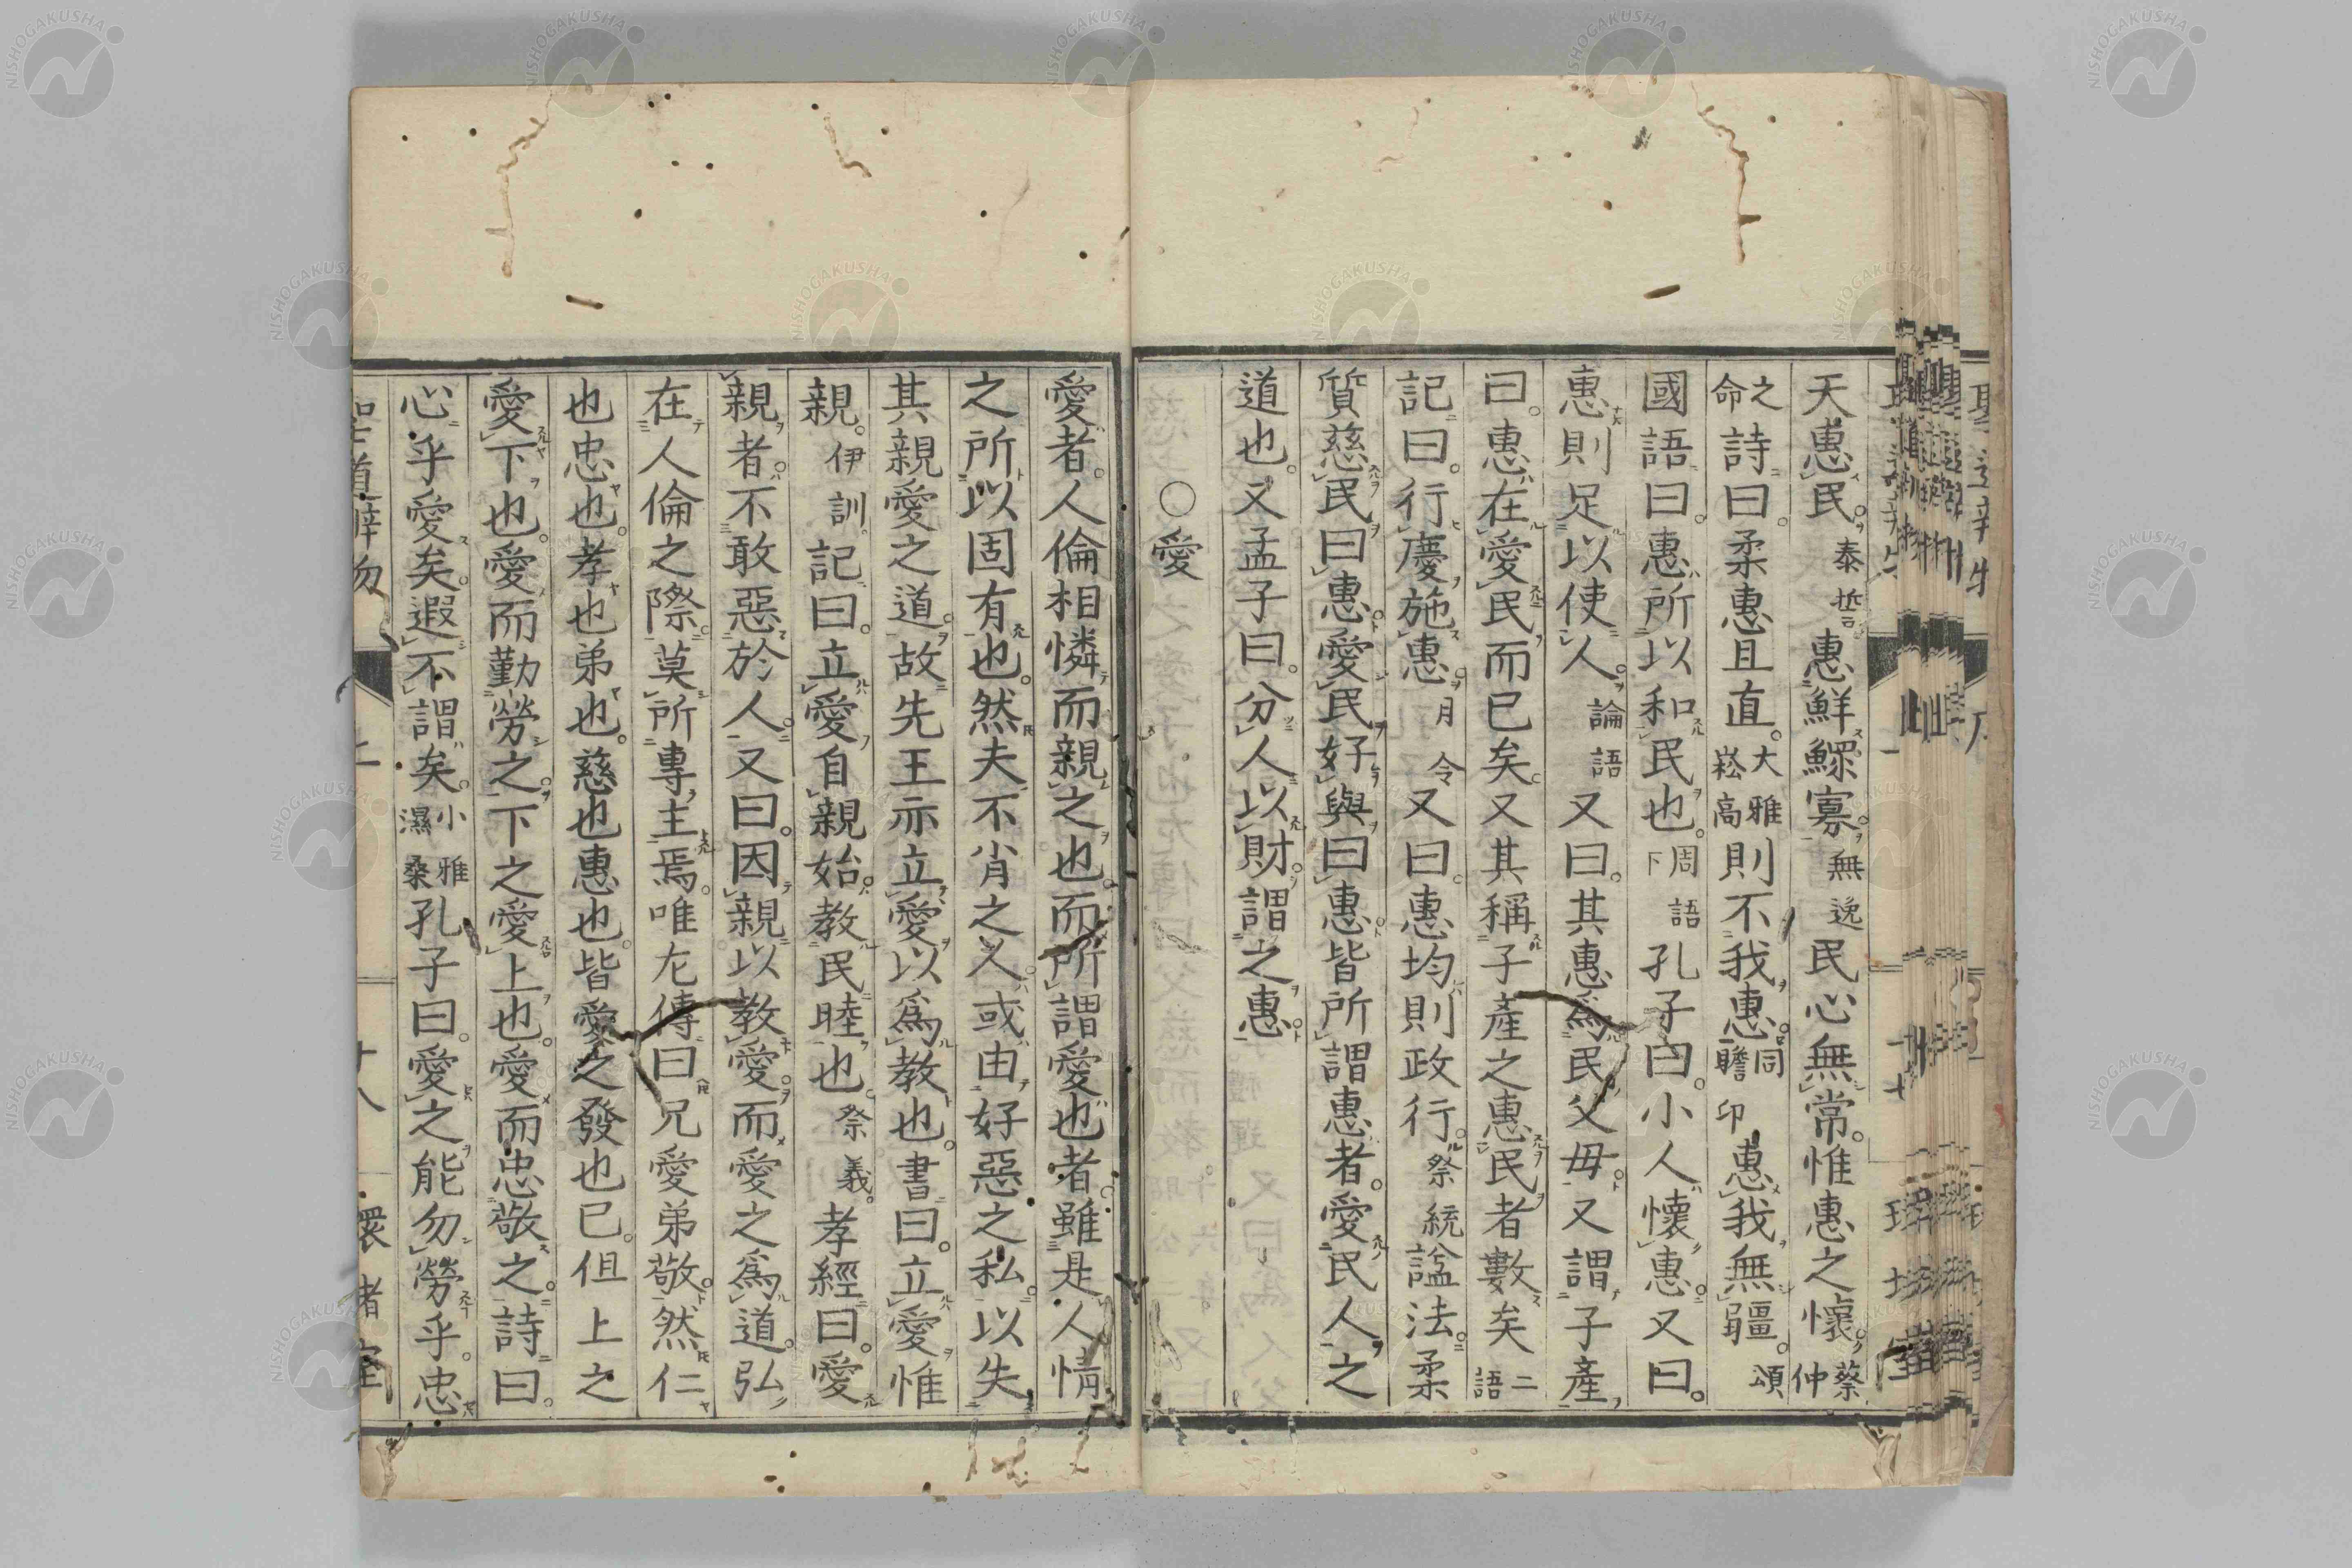 天惠民。泰誓惠鮮鰥寡。無逸民心無常。惟惠之懷。蔡仲
之命詩曰。柔惠且直。大雅崧高則不我惠。同瞻卬惠我無疆。頌
國語曰。惠所以和民也。周語下孔子曰。小人懷惠。又曰。
惠則足以使人。論語又曰。其惠爲民父母。又謂子產
曰。惠在愛民而已矣。又其稱子產之惠民者數矣二語
記曰。行慶施惠。月令又曰。惠均則政行。祭統諡法。柔
質慈民曰惠。愛民好與曰惠。皆所謂惠者。愛民人之
道也。又孟子曰。分人以財。謂之惠
○愛
愛者。人倫相憐而親之也。而所謂愛也者。雖是人情
之所以固有也。然夫不肖之人。或由好惡之私。以失
其親愛之道。故先王亦立愛以爲教也。書曰。立愛惟
親。伊訓。記曰。立愛自親始。教民睦也。祭義。孝經曰。愛
親者。不敢惡於人。又曰。因親以教愛。而愛之爲道。弘
在人倫之際。莫所專主焉。唯左傳曰兄愛弟敬。然仁
也忠也。孝也弟也。慈也惠也。皆愛之發也已。但上之
愛下也。愛而勤勞之。下之愛上也。愛而忠敬之。詩曰。
心乎愛矣。遐不謂矣。小雅濕桑孔子曰。愛之能勿勞乎。忠
聖道辨物 上 十八 環堵室
NISHOGAKUSHA